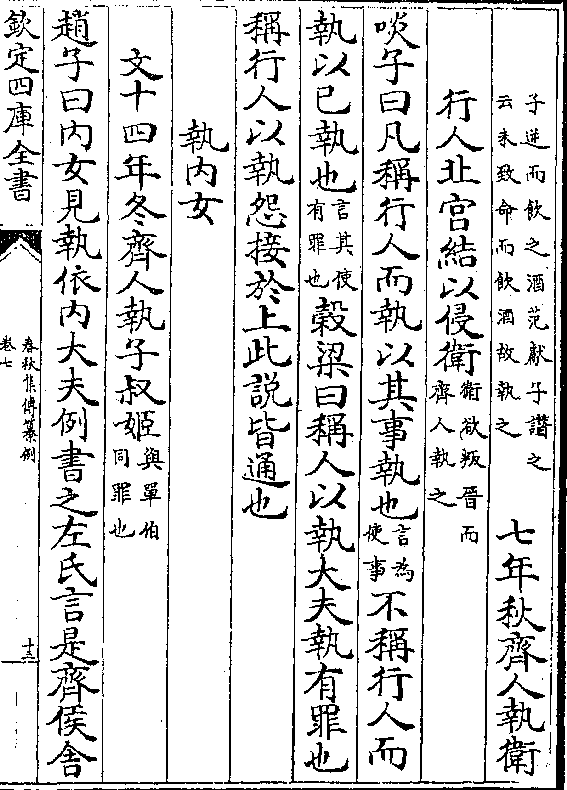 子逆而飲之酒范獻子譖之
云未致命而飲酒故執之
七年秋齊人執衛
行人北宮結以侵衛
衛欲叛晉而
齊人執之
啖子曰凡稱行人而執以其事執也
言為
使事
不稱行人而
執以已執也
言其使
有罪也
榖梁曰稱人以執大夫執有罪也
稱行人以執怨接於上此說皆通也
執内女
文十四年冬齊人執子叔姬
與單伯
同罪也
趙子曰内女見執依内大夫例書之左氏言是齊侯舍
欽定四庫全書
春秋集傳纂例
卷七
十三